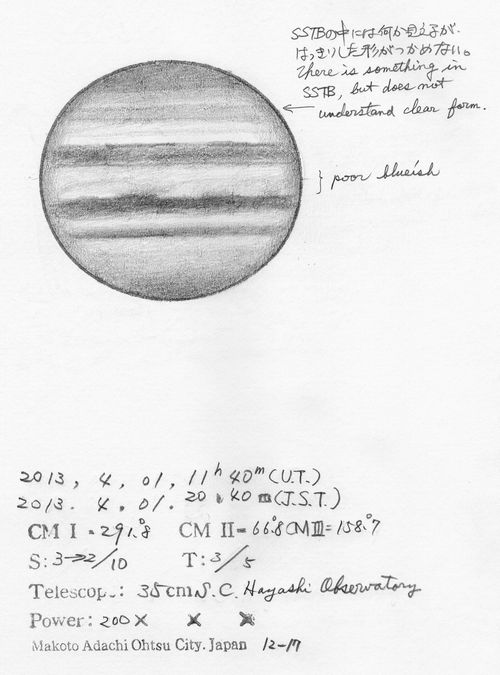 SSTBの中には何か見えるが、
はっきりした形がつかめない。
There is something in
SSTB, but does not
understand clear form.
poor blueish
2013, 4, 01, 11h 40m (U.T.)
2013. 4. 01. 20h 40m (J.S.T.)
CM I = 291.°8 CM II = 66.°8 CM III = 158.°7
S: 3→2/10 T: 3/5
Telescop.: 35cm S.C. Hayashi Observatory
Power: 200× × ×
Makoto Adachi Ohtsu City. Japan 12-17